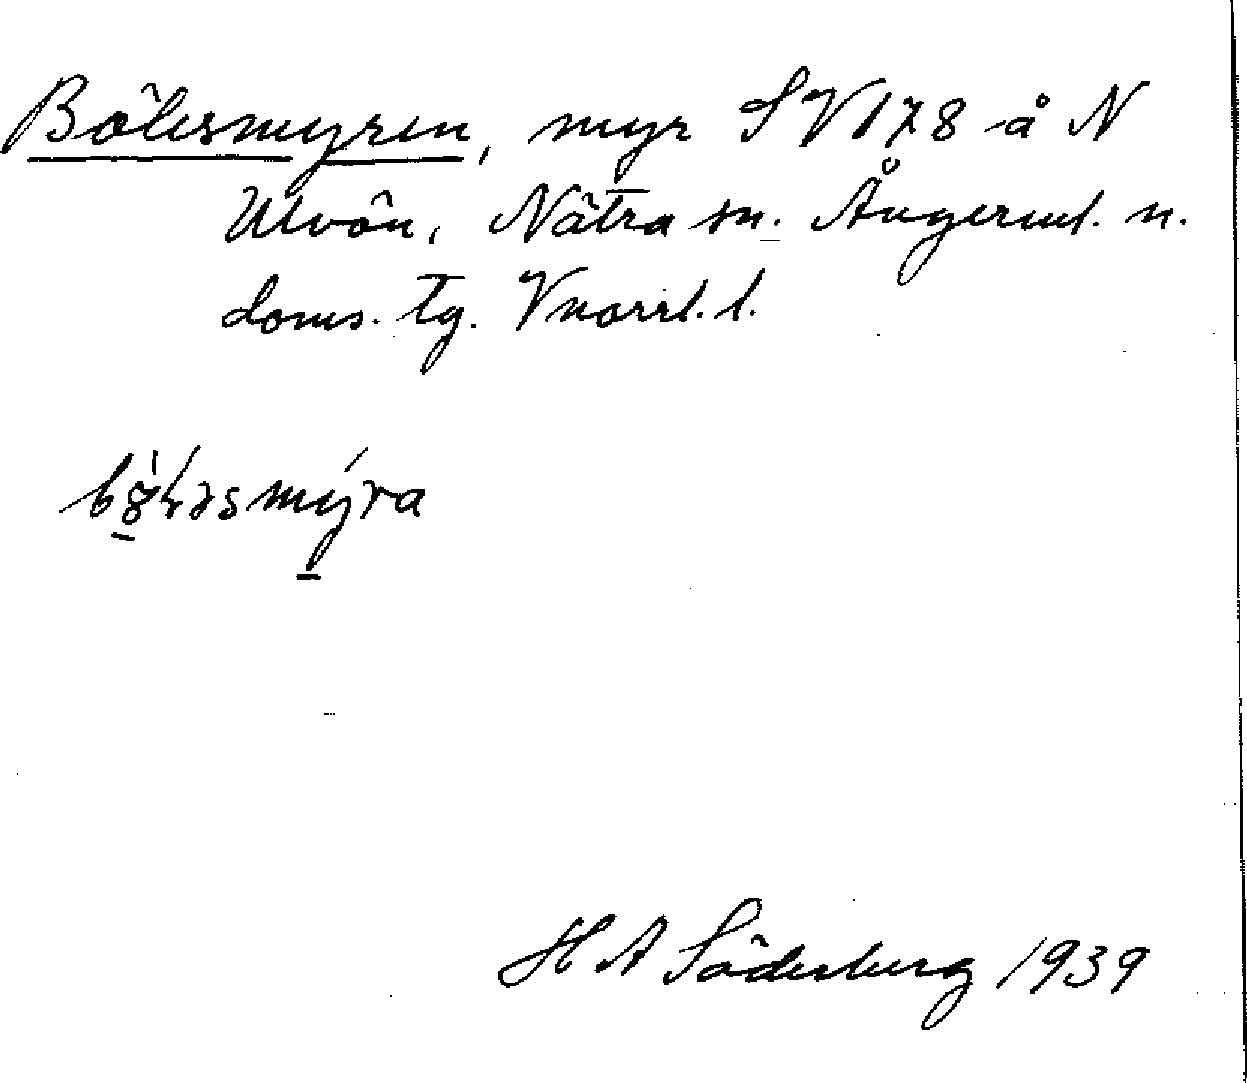 Bölesmyren, myr SV178 å N
Ulvön, Nätra sn. Ångerml. n.
doms. tg. Vnorrl. l.
bö̀ləsmýra
H A Söderberg 1939